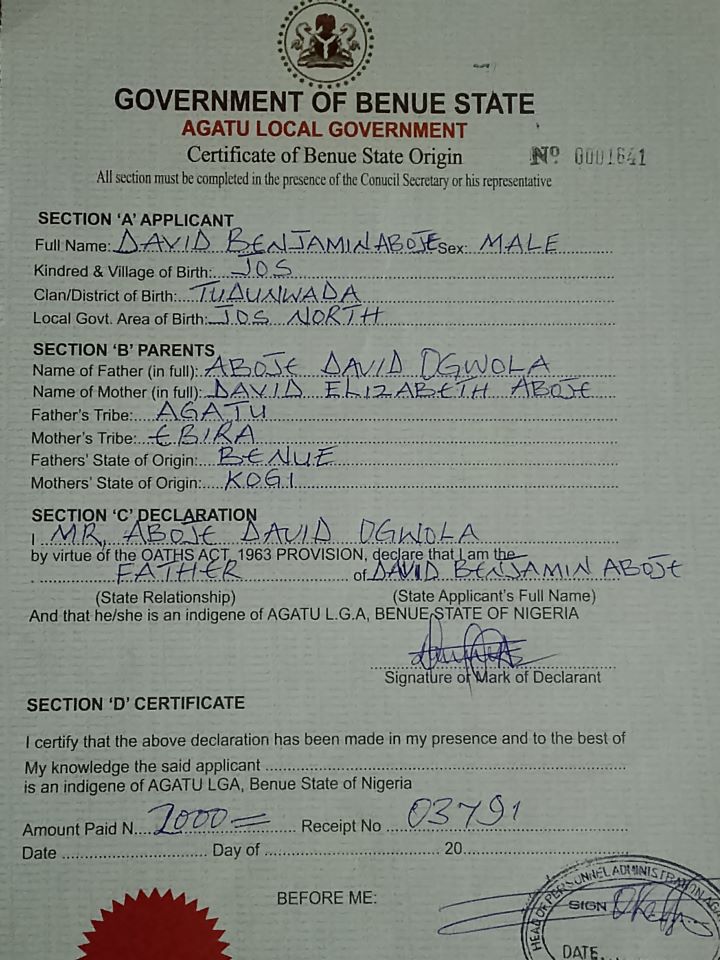 GOVERNMENT OF BENUE STATE
AGATU LOCAL GOVERNMENT
Certificate of Benue State Origin Nº 0001641
All section must be completed in the presence of the Conucil Secretary or his representative
SECTION 'A' APPLICANT
Full Name: DAVID BENJAMIN ABOJE Sex: MALE
Kindred & Village of Birth: JOS
Clan/District of Birth: TUDUNWADA
Local Govt. Area of Birth: JOS NORTH
SECTION 'B' PARENTS
Name of Father (in full): ABOJE DAVID OGWOLA
Name of Mother (in full): DAVID ELIZABETH ABOJE
Father's Tribe: AGATU
Mother's Tribe: EBIRA
Fathers' State of Origin: BENUE
Mothers' State of Origin: KOGI
SECTION 'C' DECLARATION
I MR, ABOJE DAVID OGWOLA
by virtue of the OATHS ACT, 1963 PROVISION, declare that I am the
FATHER of DAVID BENJAMIN ABOJE
(State Relationship) (State Applicant's Full Name)
And that he/she is an indigene of AGATU L.G.A, BENUE STATE OF NIGERIA
Signature or Mark of Declarant
SECTION 'D' CERTIFICATE
I certify that the above declaration has been made in my presence and to the best of
My knowledge the said applicant
is an indigene of AGATU LGA, Benue State of Nigeria
Amount Paid N 2000= Receipt No 03791
Date Day of 20
BEFORE ME:
HEAD OF PERSONNEL ADMINISTRATION
SIGN
DATE